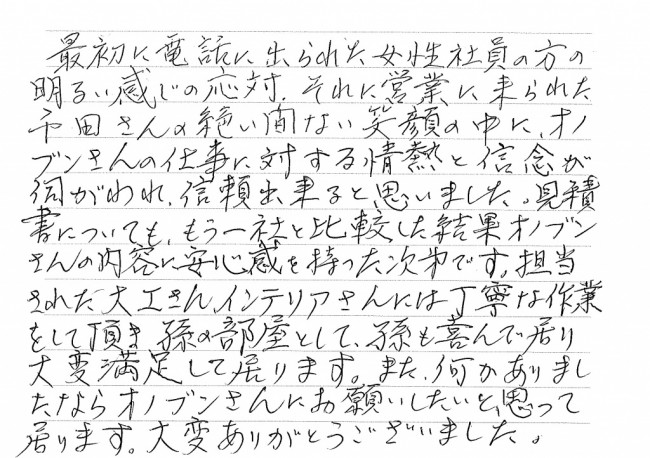 最初に電話に出られた女性社員の方の
明るい感じの応対、それに営業に来られた
予田さんの絶い間ない笑顔の中に、オノ
ブンさんの仕事に対する情熱と信念が
伺がわれ、信頼出来ると思いました。見積
書についても、もう一社と比較した結果オノブン
さんの内容に安心感を持った次第です。担当
された大工さん、インテリアさんには丁寧な作業
をして頂き、孫の部屋として、孫も喜んで居り
大変満足して居ります。また、何かありまし
たならオノブンさんにお願いしたいと思って
居ります。大変ありがとうございました。